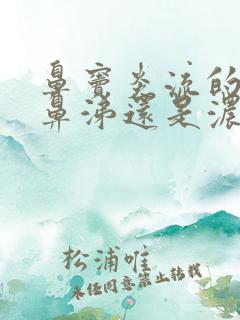 鼻竇炎流的
鼻涕還是濃
松浦唯
未经同意禁止转载